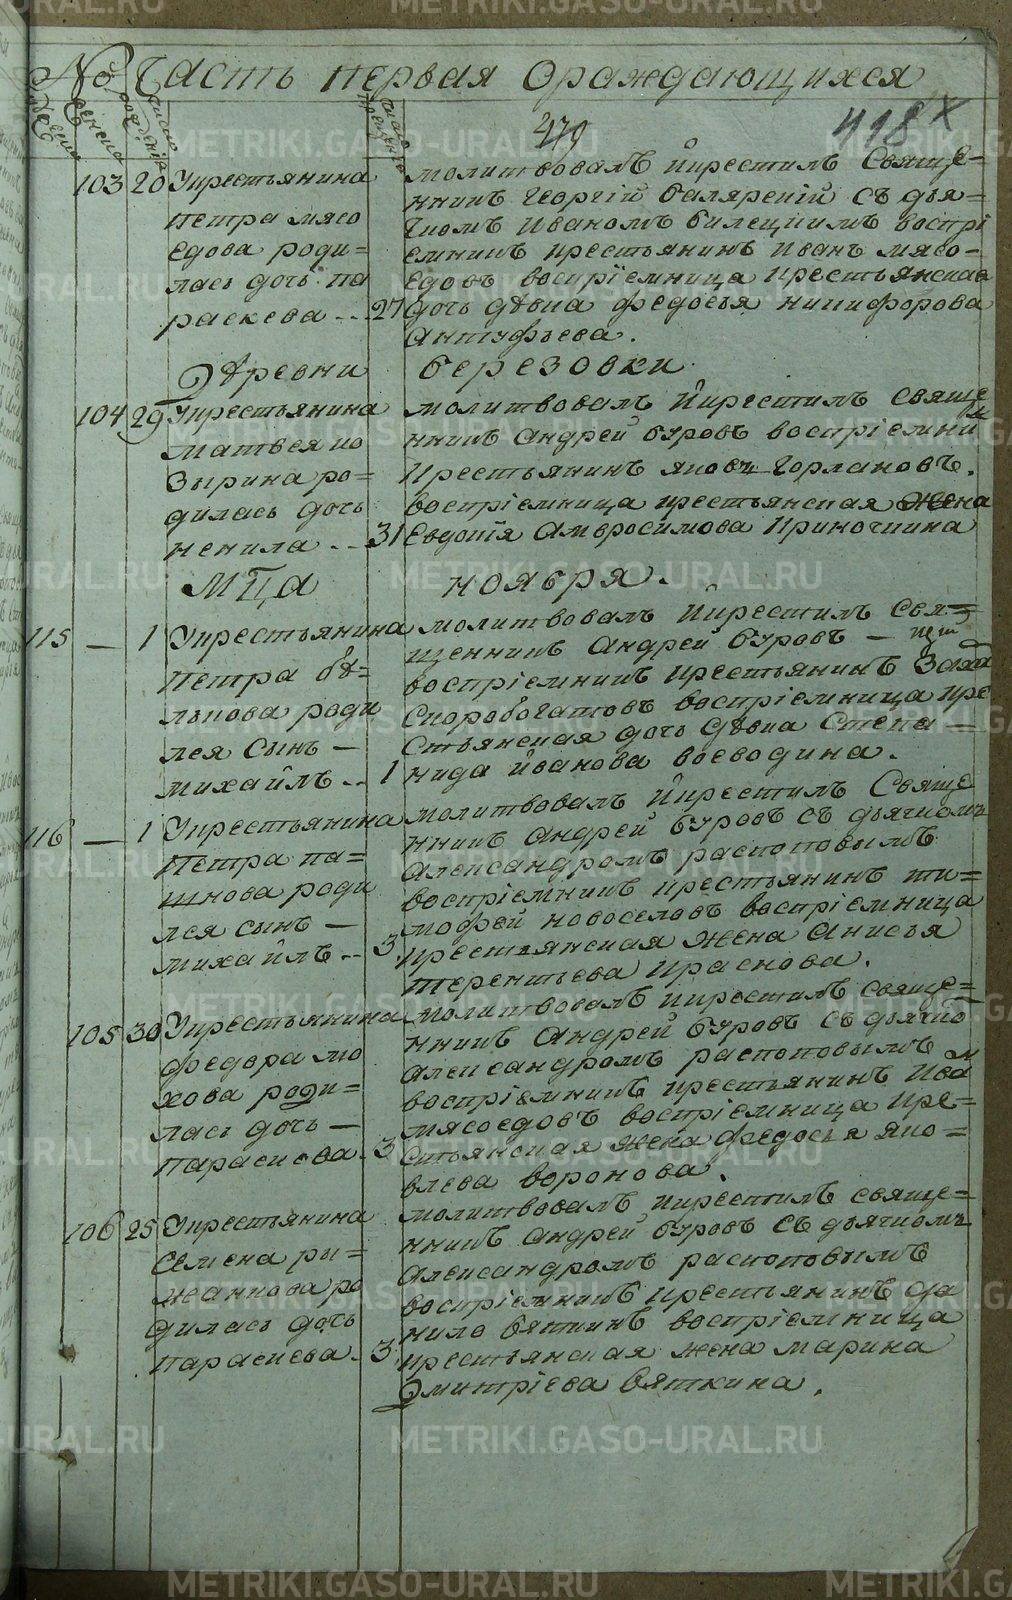 № Часть первая Ораждающихся
470
418
103 20 Укрестьянина
Петра мясо
едова роди=
лась дочь па
раскева ... 27
молитвовалъ Икрестилъ Свяще=
нникъ Георгій Баляренскій съ дья=
чкомъ Иваномъ Билецкимъ воспрі
емникъ крестьянинъ Иванъ мясо=
едовъ воспріемница крестьянская
дочь девка федосья никифорова
Антуфьева.
Деревни березовки
104 29 Укрестьянина
матвея ко
зырина ро=
дилась дочь
ненила ... 31
молитвовалъ Икрестилъ свяще
нникъ Андрей буровъ воспріемникъ
крестьянинъ яковъ Горлановъ.
воспріемница крестьянская жена
Евдокія Амвросимова Криночкина
Мца ноября.
115 — 1 Укрестьянина
Петра бѣ=
лькова роди
лся сынъ —
михайлъ ... 1
молитвовалъ Икрестилъ свя=
щенникъ Андрей буровъ —
воспріемникъ крестьянинъ
Скоробогатовъ воспріемница кре
стьянская дочь девка Степа —
нида Иванова воеводина.
116 — 1 Укрестьянина
Петра па=
шнова роди
лся сынъ —
михайлъ ... 3
молитвовалъ Икрестилъ Свяще
нникъ Андрей буровъ съ дьячкомъ
Александромъ распоповымъ
воспріемникъ крестьянинъ ти=
мофей новоселовъ воспріемница
крестьянская жена Анисья
терентьева краснова.
105 30 Укрестьянина
федора мо
хова роди=
лась дочь —
параскева. 3
молитвовалъ Икрестилъ свяще=
нникъ Андрей буровъ съ дьячко
Александромъ распоповымъ м
воспріемникъ крестьянинъ Ива
мясоедовъ воспріемница кре=
стьянская жена федосья яко=
влева воронова.
106 25 Укрестьянина
Семена ры=
жанкова ро
дилась дочь
параскева. 3
молитвовалъ Икрестилъ свяще=
нникъ Андрей буровъ съ дьячкомъ
Александромъ распоповымъ
воспріемникъ крестьянинъ да
нило вяткинъ воспріемница
крестьянская жена марина
Дмитріева вяткина.
METRIKI.GASO-URAL.RU